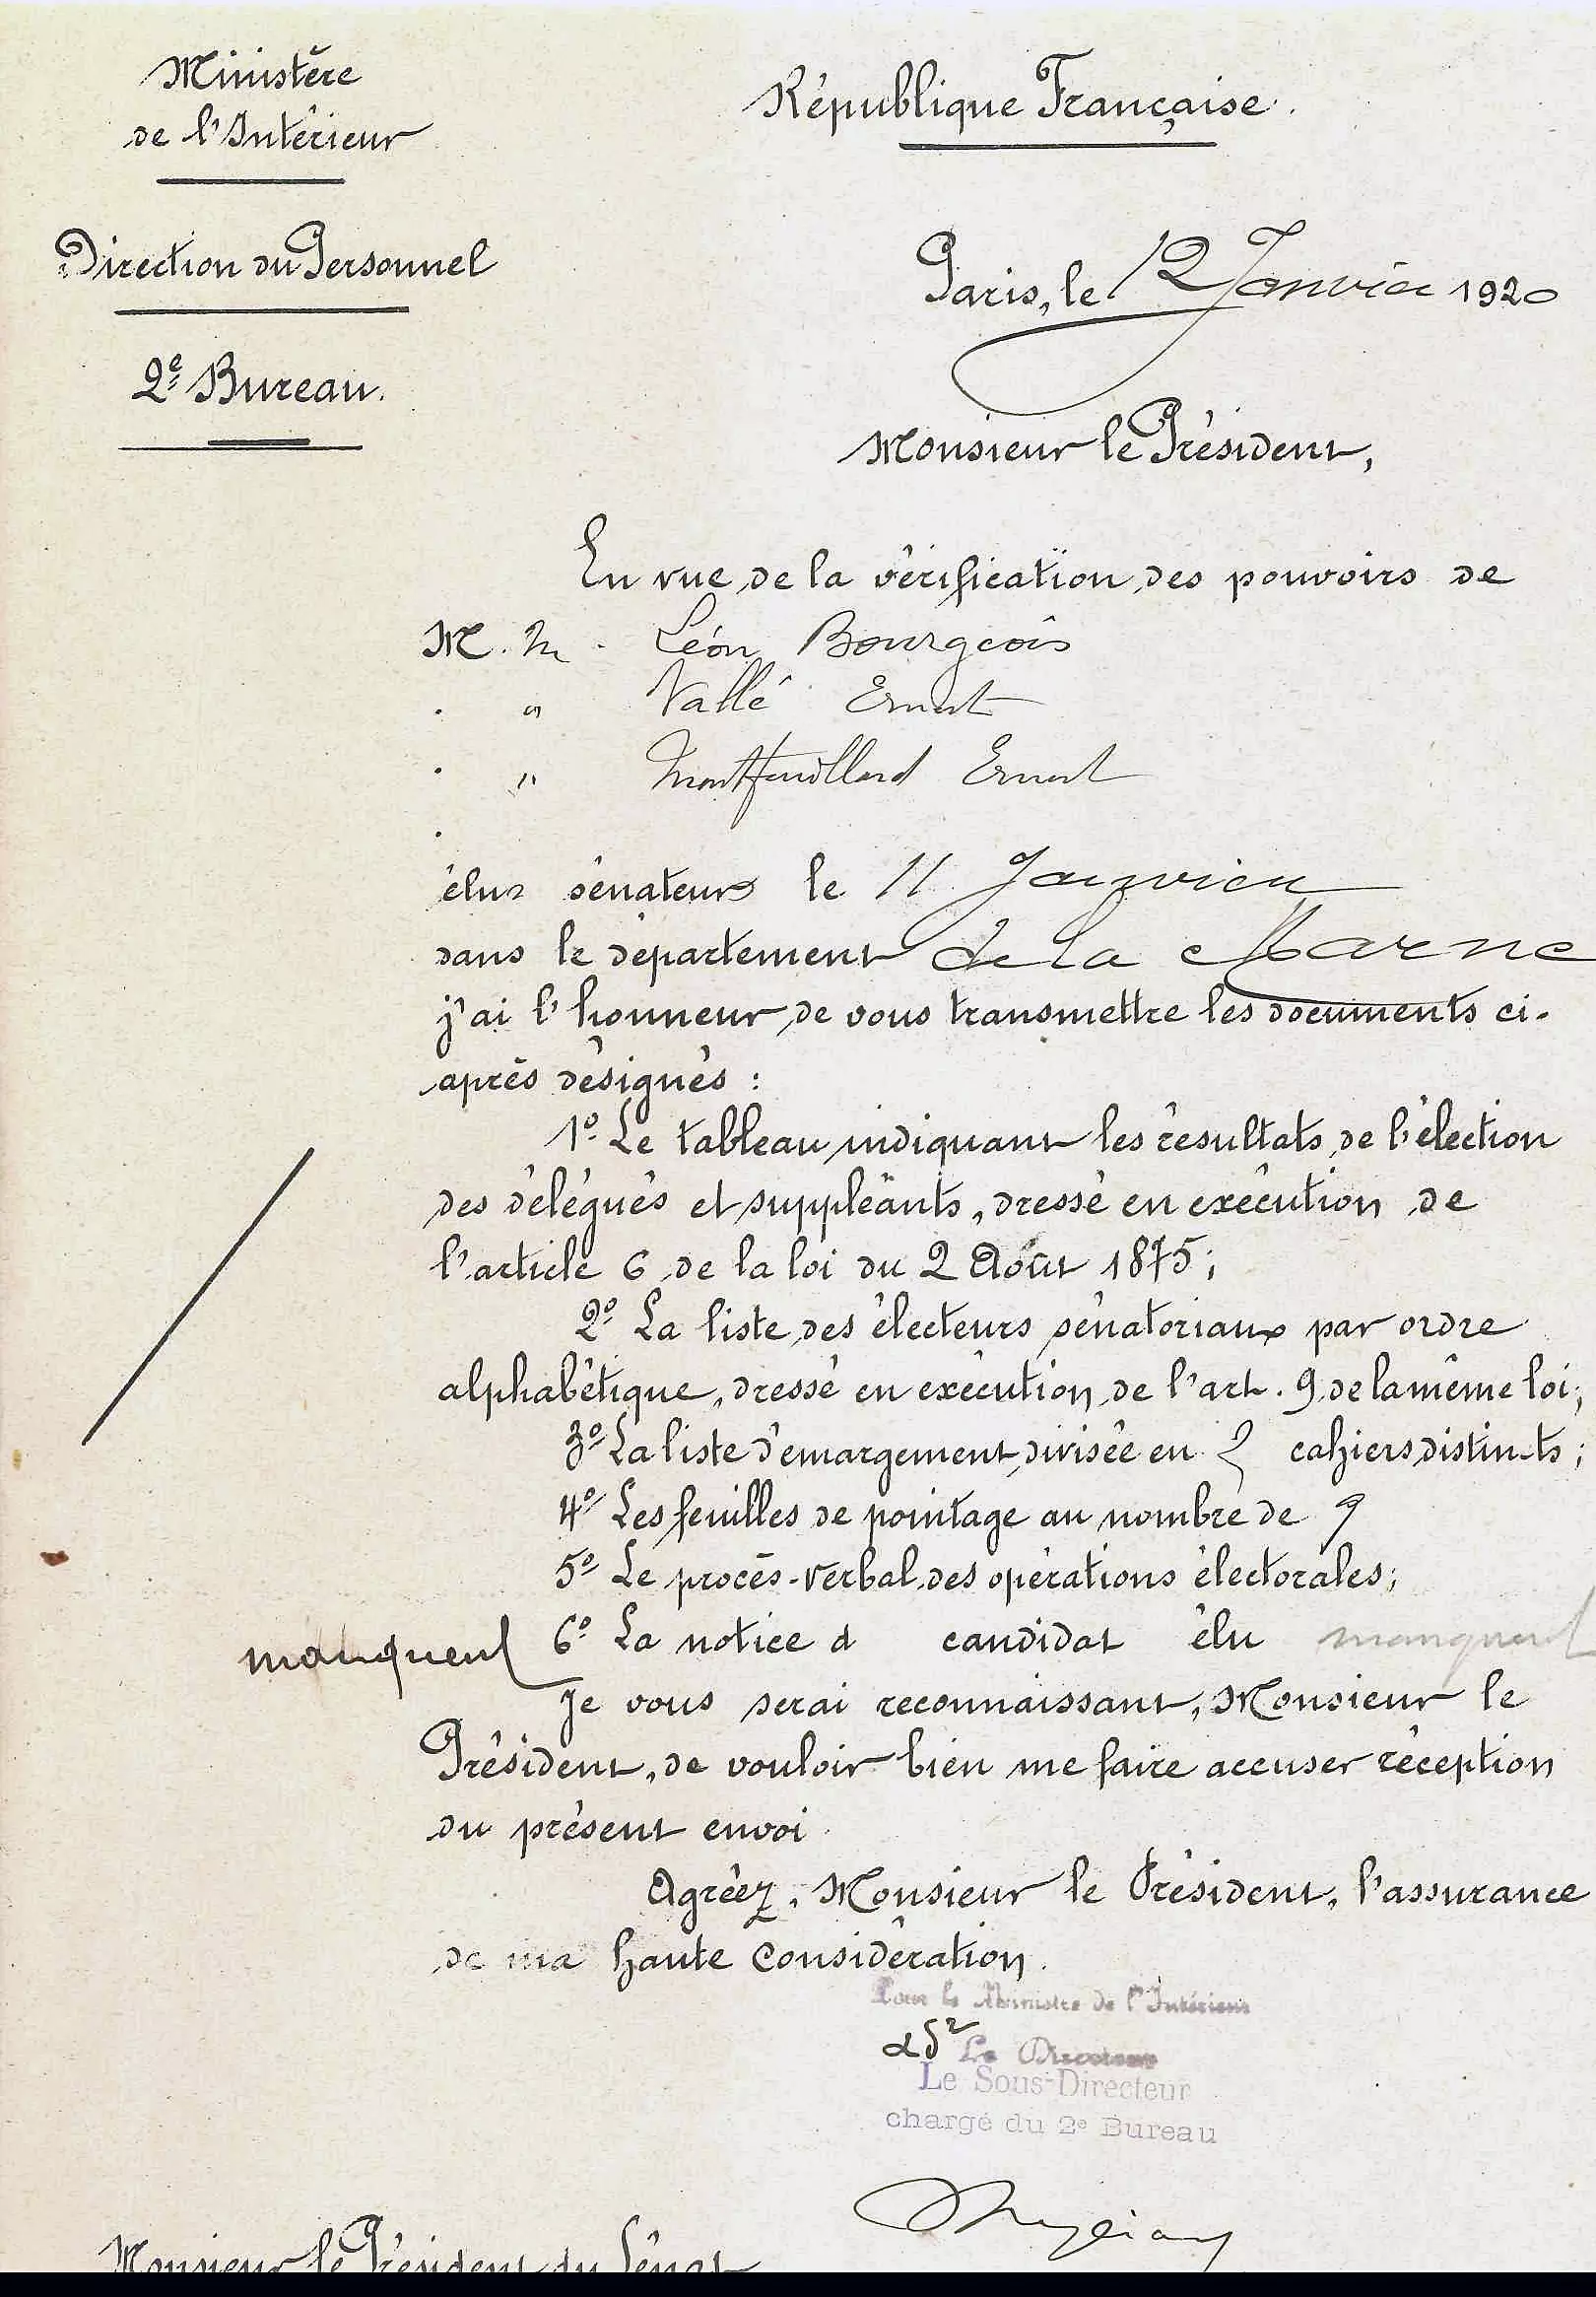 Ministère
de l'Intérieur
République Française.
Direction du Personnel
Paris, le 12 Janvier 1920
2e Bureau.
Monsieur le Président,
En vue de la vérification des pouvoirs de
M. M. Léon Bourgeois
" Vallé Ernest
" Montfeuillard Ernest
élus sénateurs le 11 Janvier
dans le département de la Marne
j'ai l'honneur de vous transmettre les documents ci-
après désignés :
1o Le tableau indiquant les résultats de l'élection
des délégués et suppléants, dressé en exécution de
l'article 6 de la loi du 2 Août 1875;
2o La liste des électeurs sénatoriaux par ordre
alphabétique, dressé en exécution de l'art. 9 de la même loi;
3o La liste d'émargement divisée en cahiers distincts;
4o Les feuilles de pointage au nombre de 9
5o Le procès-verbal des opérations électorales;
manquent 6o La notice d candidat élu manquent
Je vous serai reconnaissant, Monsieur le
Président, de vouloir bien me faire accuser réception
du présent envoi.
Agréez, Monsieur le Président, l'assurance
de ma haute considération.
Pour le Ministre de l'Intérieur
Le Directeur
Le Sous-Directeur
chargé du 2e Bureau
Monsieur le Président du Sénat